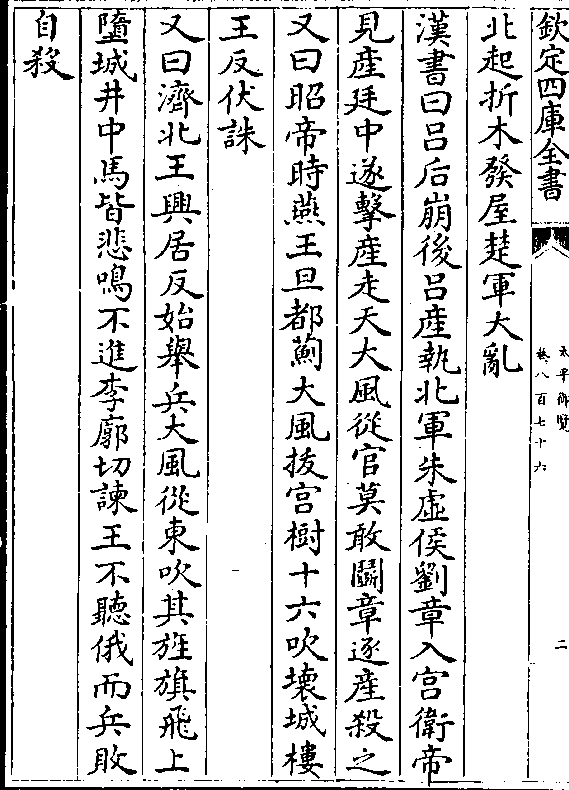 欽定四庫全書
太平御覽
卷八百七十六
二
北起折木發屋楚軍大亂
漢書曰吕后崩後吕產執北軍朱虛侯劉章入宫衛帝
見產廷中遂擊產走天大風從官莫敢鬭章逐產殺之
又曰昭帝時燕王旦都薊大風拔宫樹十六吹壞城樓
王反伏誅
又曰濟北王興居反始舉兵大風從東吹其旌旗飛上
墮城井中馬皆悲鳴不進李廓切諫王不聽俄而兵敗
自殺